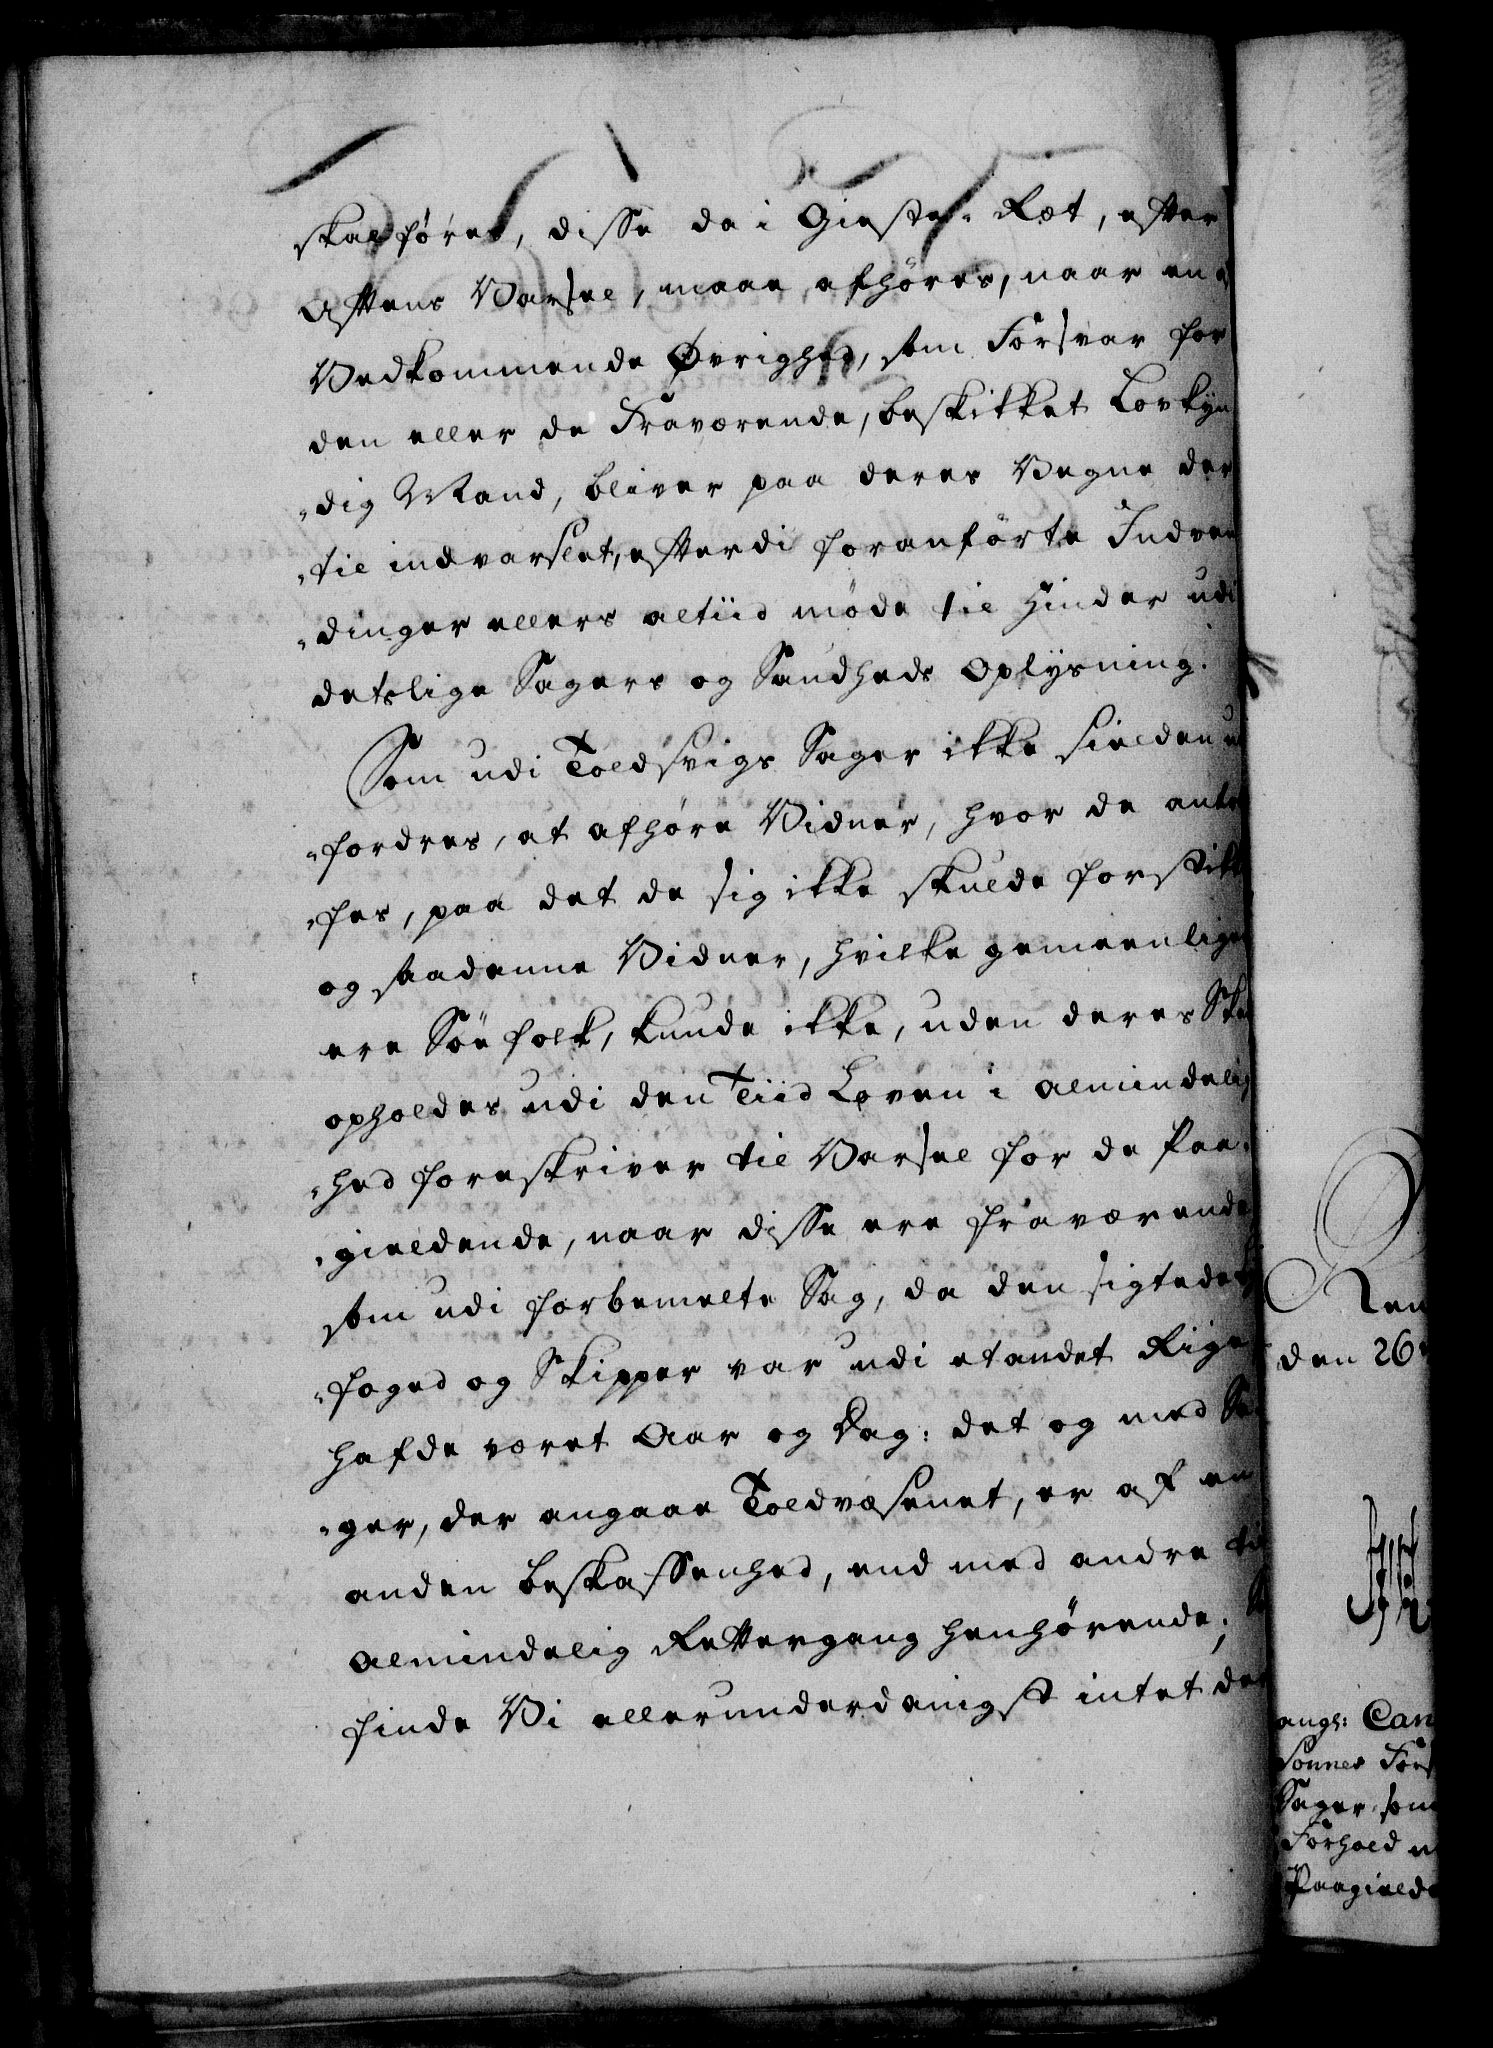 skal føres, disse da i Gieste-Ræt, efter
Aftens Varsel, maae afhøres, naar en af
Vedkommende Øvrighed, som Forsvar for
den eller de Fraværende, beskikket Lovkyn
„dig Mand, bliver paa deres Vegne der
„til indvarslet, efterdi foranførte Indven
„dinger ellers altiid møde til Hinder udi
detslige Sagers og Sandheds Oplysning.
Som udi Toldsvigs Sager ikke sielden ud
„fordres, at afhøre Vidner, hvor de antref
„fes, paa det de sig ikke skulde forstikke
og saadanne Vidner, hvilke gemeenligen
ere Søefolk, kunde ikke, uden deres Skade
opholdes udi den Tiid Loven i almindelig
„hed foreskriver til Varsel for de Paa-
„gieldende, naar disse ere fraværende,
som udi forbemelte Sag, da den sigtede
„foged og Skipper var udi et andet Rige
hafde været Aar og Dag: det og med Sa
„ger, der angaae Toldvæsenet, er af en
anden beskaffenhed, end med andre til
almindelig Rettergang henhørende; Saa
finde Vi allerunderdanigst intet der
den 26
angl: Can
Sonnes Fors
Sager som
Forhold
Paagielde